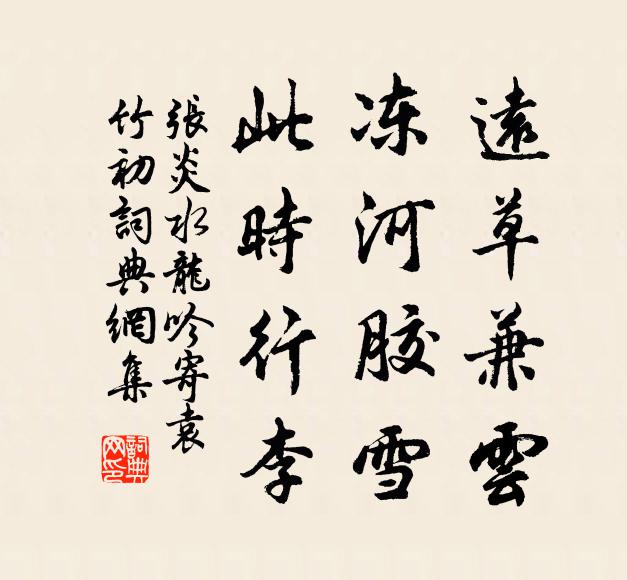 遠草兼雲
冻河胶雪
此時行李
張炎水龍吟寄袁
竹初詞典網集
詞典网印